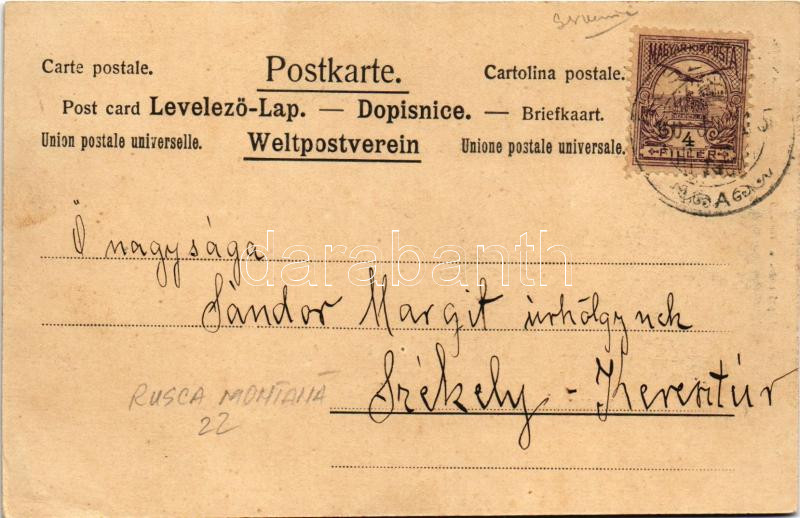 Carte postale. Postkarte. Cartolina postale.
Post card Levelező-Lap. — Dopisnice. — Briefkaart.
Union postale universelle. Weltpostverein Unione postale universale.
MAGYAR KIR. POSTA
4
FILLÉR
Ő nagysága
Sándor Margit úrhölgynek
Székely-Keresztúr
RUSCA MONTANĂ
22
darabanth